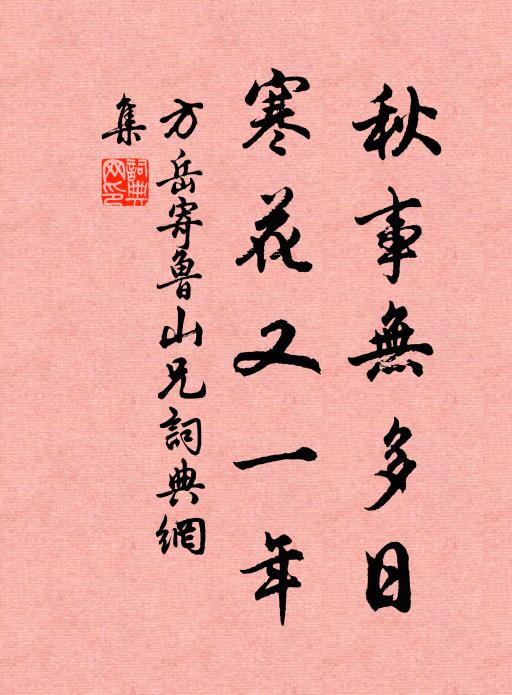 秋事無多日
寒花又一年
方岳寄魯山兄詞典網
集
詞典網印